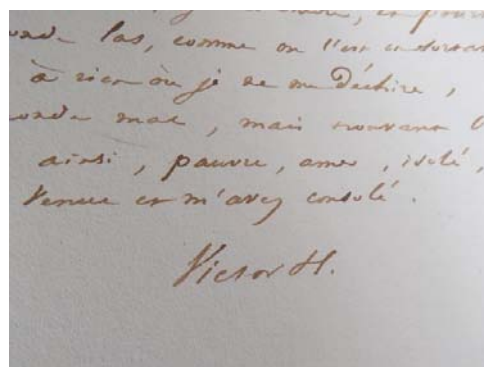 las, comme on l'est en sortant
à rien où je ne me déchire,
mal, mais trouvant
ainsi, pauvre, amer, isolé,
venue et m'avez consolé.
Victor H.